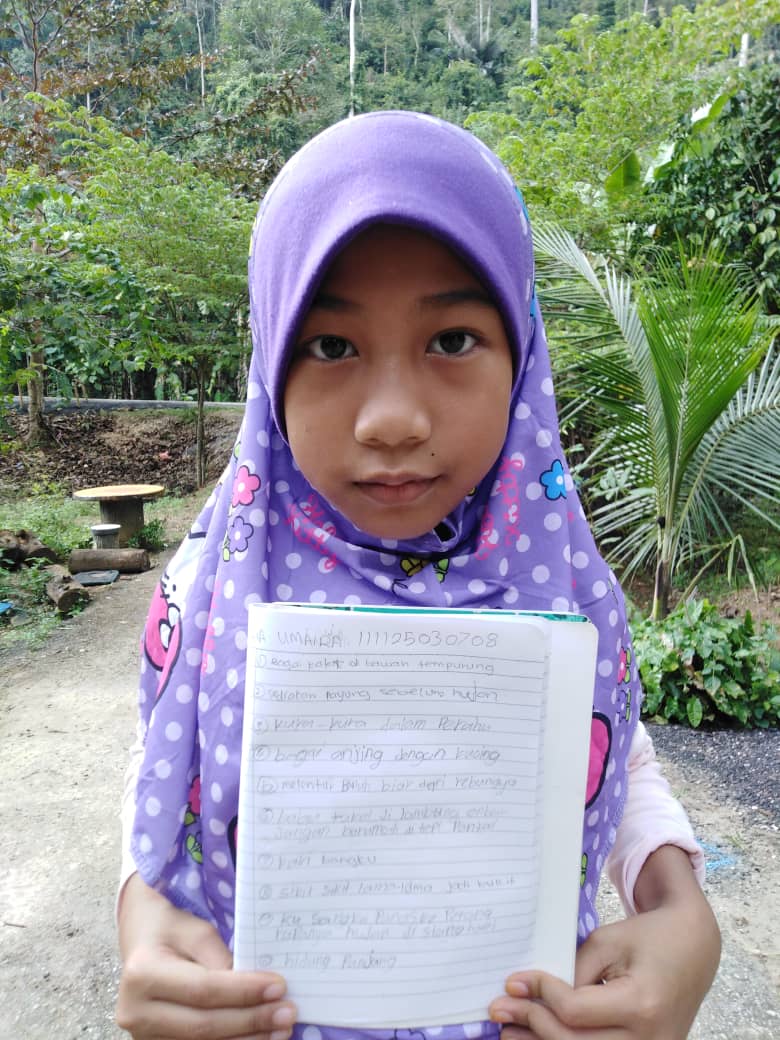 UMAIRA 111125030708
1) Bagai katak di bawah tempurung
2) sediakan payung sebelum hujan
3) kura-kura dalam Perahu
4) bagai anjing dengan kucing
5) melentur Buluh biar dari rebungnya
6) di lambung ombak
Jangan berumah di tepi Pantai
7) kaki bangku
8) sikit sikit lama-lama jadi bukit
9) Ku Sangka Panas ke Petang
rupanya hujan di
10) hidung